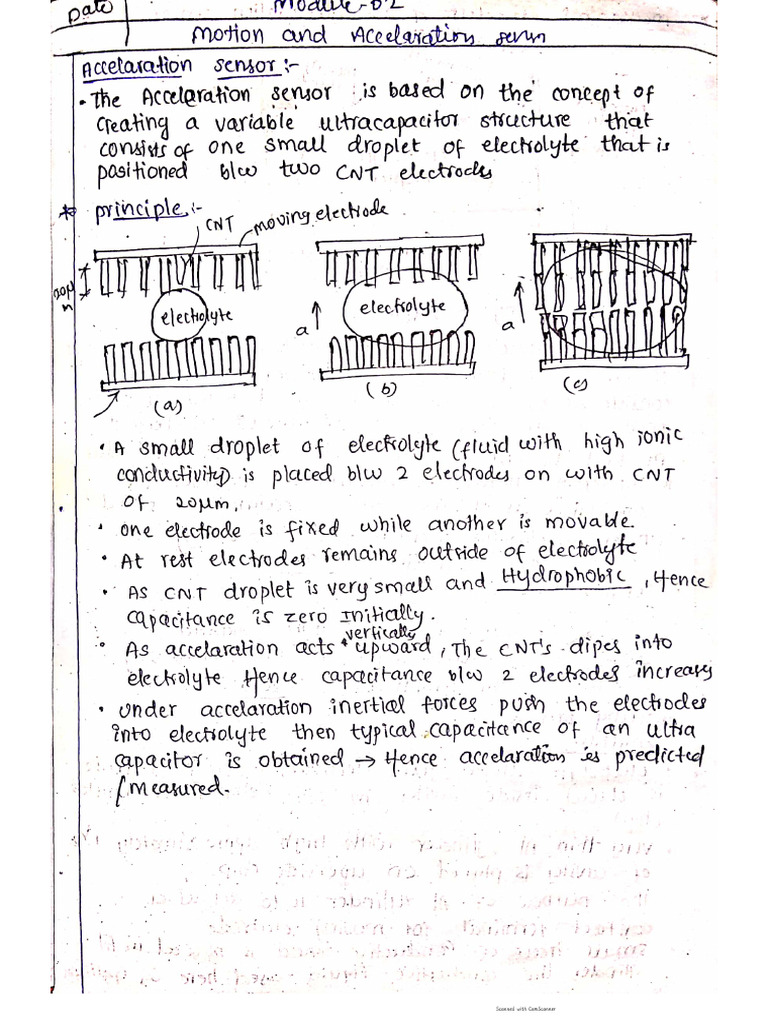 Date
Module-02
Motion and Accelaration sensn
Accelaration sensor:-
• The Acceleration sensor is based on the concept of
creating a variable ultracapacitor structure that
consists of one small droplet of electrolyte that is
positioned b/w two CNT electrodes
* principle:-
CNT
moving electrode
20μm
electrolyte
electrolyte
a
a
(a)
(b)
(c)
• A small droplet of electrolyte (fluid with high ionic
conductivity) is placed b/w 2 electrodes on with CNT
of 20μm.
• one electrode is fixed while another is movable.
• At rest electrodes remains outside of electrolyte
• As CNT droplet is very small and Hydrophobic, Hence
capacitance is zero Initially.
vertically
• As accelaration acts upward, The CNT's dipes into
electrolyte Hence capacitance b/w 2 electrodes increases
• under accelaration inertial forces push the electrodes
into electrolyte then typical capacitance of an ultra
capacitor is obtained → Hence accelaration is predicted
/measured.
Scanned with CamScanner